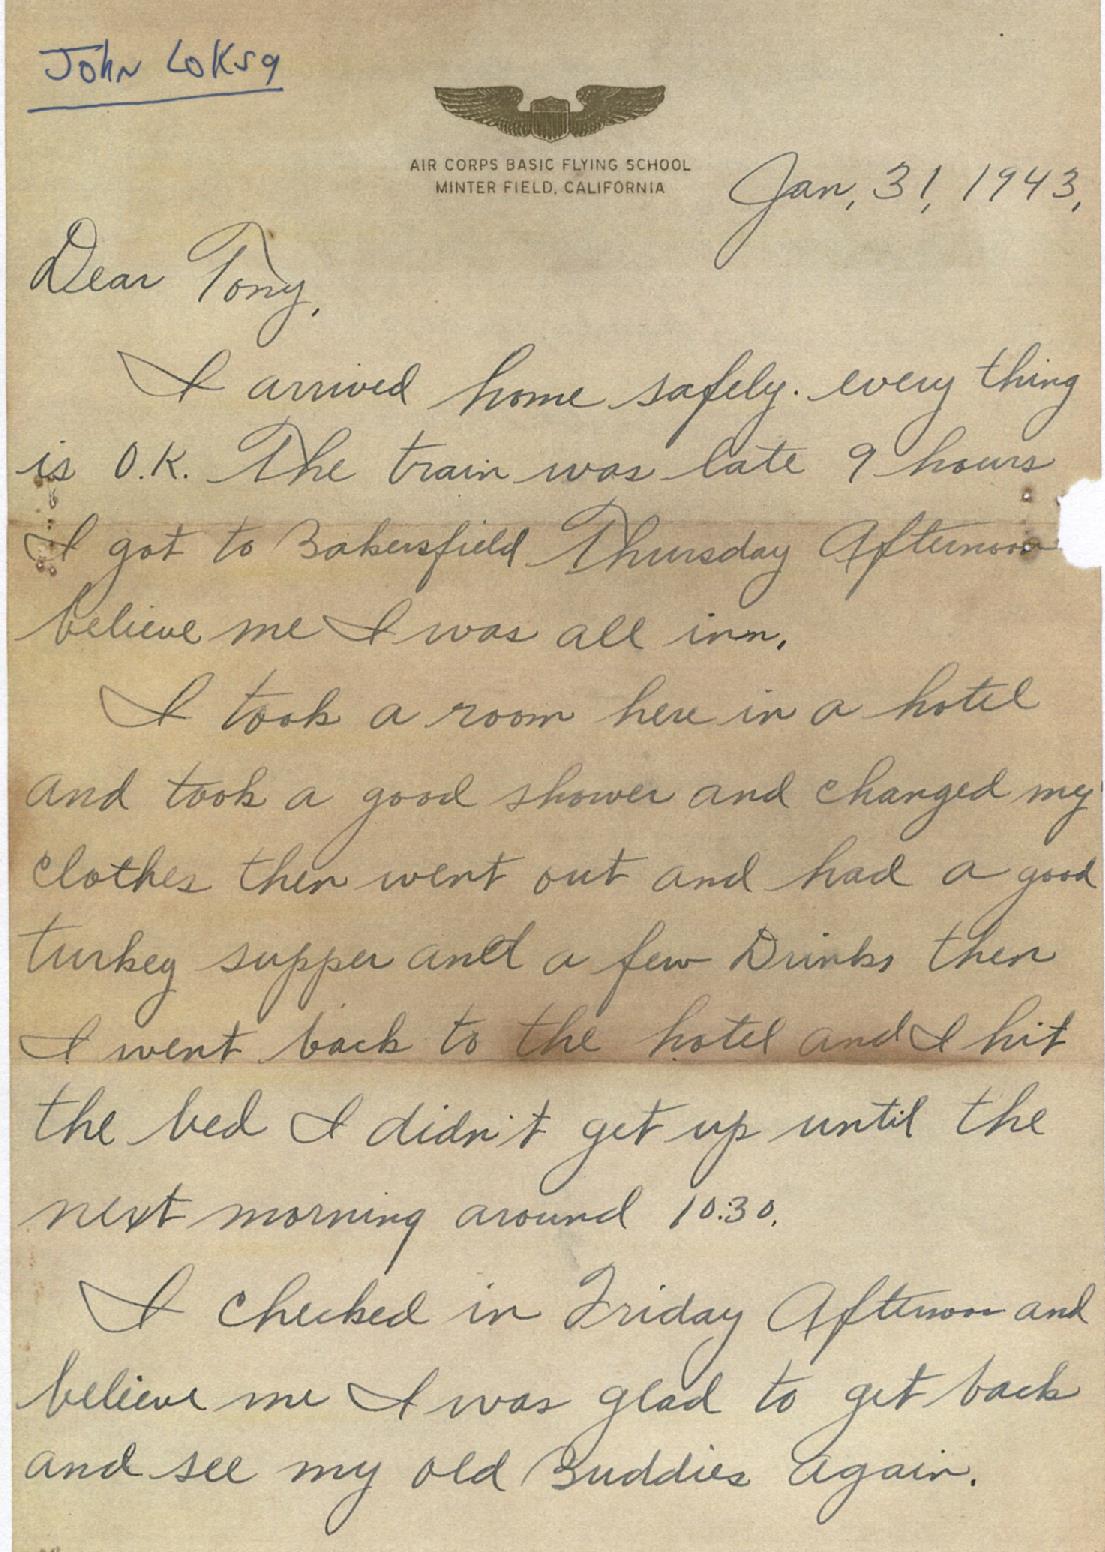 John Loksa
AIR CORPS BASIC FLYING SCHOOL
MINTER FIELD, CALIFORNIA
Jan, 31, 1943,
Dear Tony,
I arrived home safely. every thing
is O.K. The train was late 9 hours
I got to Bakersfield Thursday Afternoon
believe me I was all inn.
I took a room here in a hotel
and took a good shower and changed my
clothes then went out and had a good
turkey supper and a few Drinks then
I went back to the hotel and I hit
the bed I didn't get up until the
next morning around 10:30.
I checked in Friday Afternoon and
believe me I was glad to get back
and see my old Buddies Again.